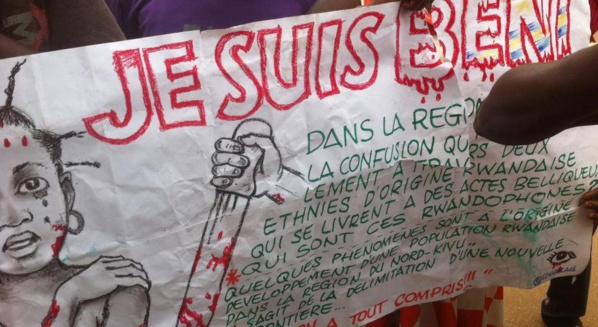 JE SUIS BENI
DANS LA REGION
LA CONFUSION DEUX
ETHNIES D'ORIGINE RWANDAISE
QUI SE LIVRENT A DES ACTES BELLIQUEUX
QUI SONT CES RWANDOPHONES?
* QUELQUES PHENOMENES SONT A L'ORIGINE
DEVELOPPEMENT D'UNE POPULATION RWANDAISE
DANS LA REGION DU NORD-KIVU
S'AGIT DE LA DELIMITATION D'UNE NOUVELLE
A TOUT COMPRIS!!!